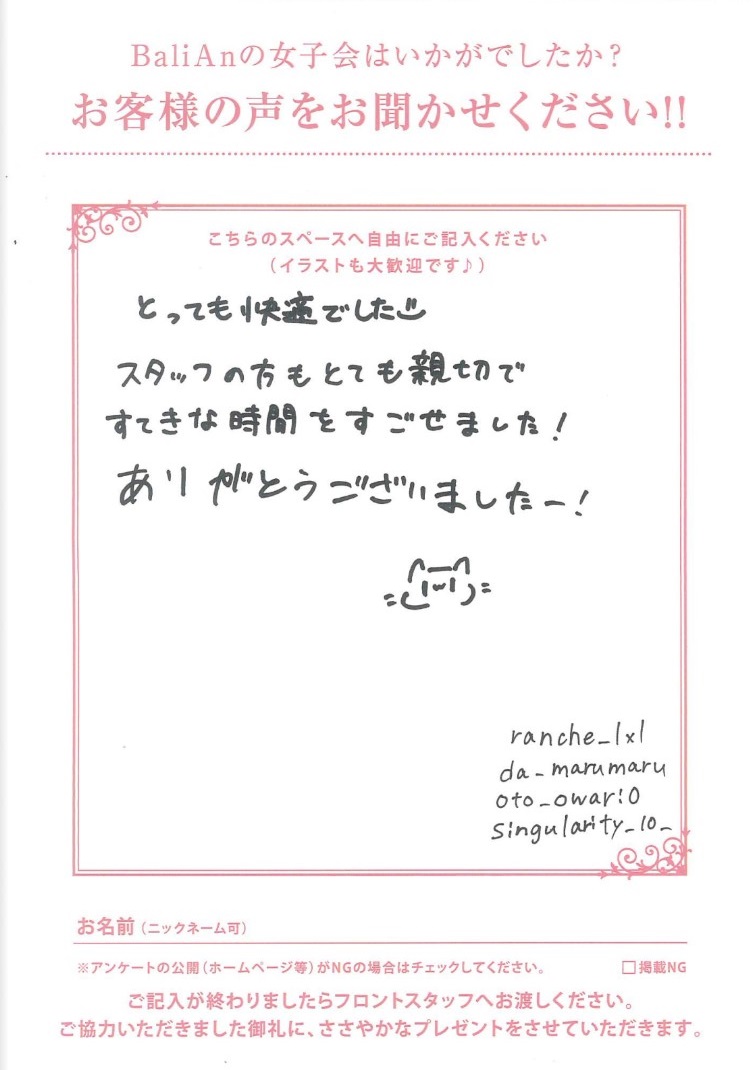 BaliAnの女子会はいかがでしたか?
お客様の声をお聞かせください!!
こちらのスペースへ自由にご記入ください
(イラストも大歓迎です♪)
とっても快適でした
スタッフの方もとても親切で
すてきな時間をすごせました!
ありがとうございましたー!
ranche_1x1
da_marumaru
oto_owari0
singularity_10_
お名前(ニックネーム可)
※アンケートの公開(ホームページ等)がNGの場合はチェックしてください。 □掲載NG
ご記入が終わりましたらフロントスタッフへお渡しください。
ご協力いただきました御礼に、ささやかなプレゼントをさせていただきます。